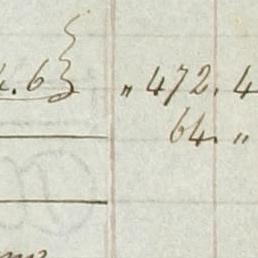 4.6 „ 472. 4
64. „